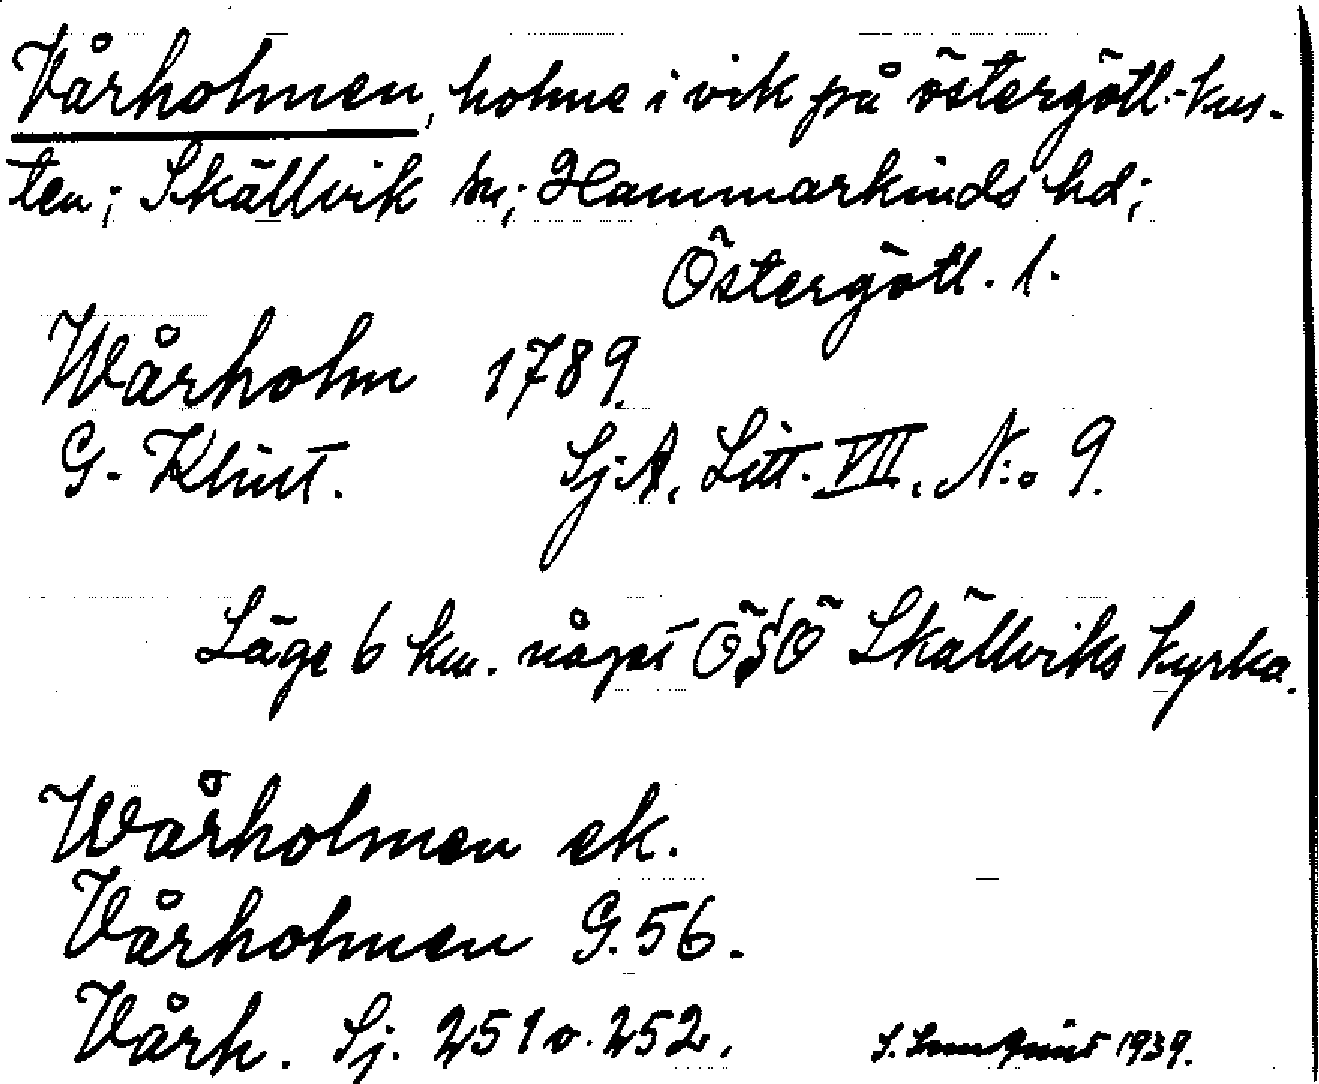 Vårholmen, holme i vik på östergötl.-kus-
ten; Skällvik sn; Hammarkinds hd;
Östergötl. l.
Wårholm 1789.
G. Klint. Sj. A. Litt. VII. N:o 9.
Läge 6 km. något ÖSÖ Skällviks kyrka.
Wårholmen ek.
Vårholmen G. 56.
Vårh. Sj. 251 o. 252.
1939.